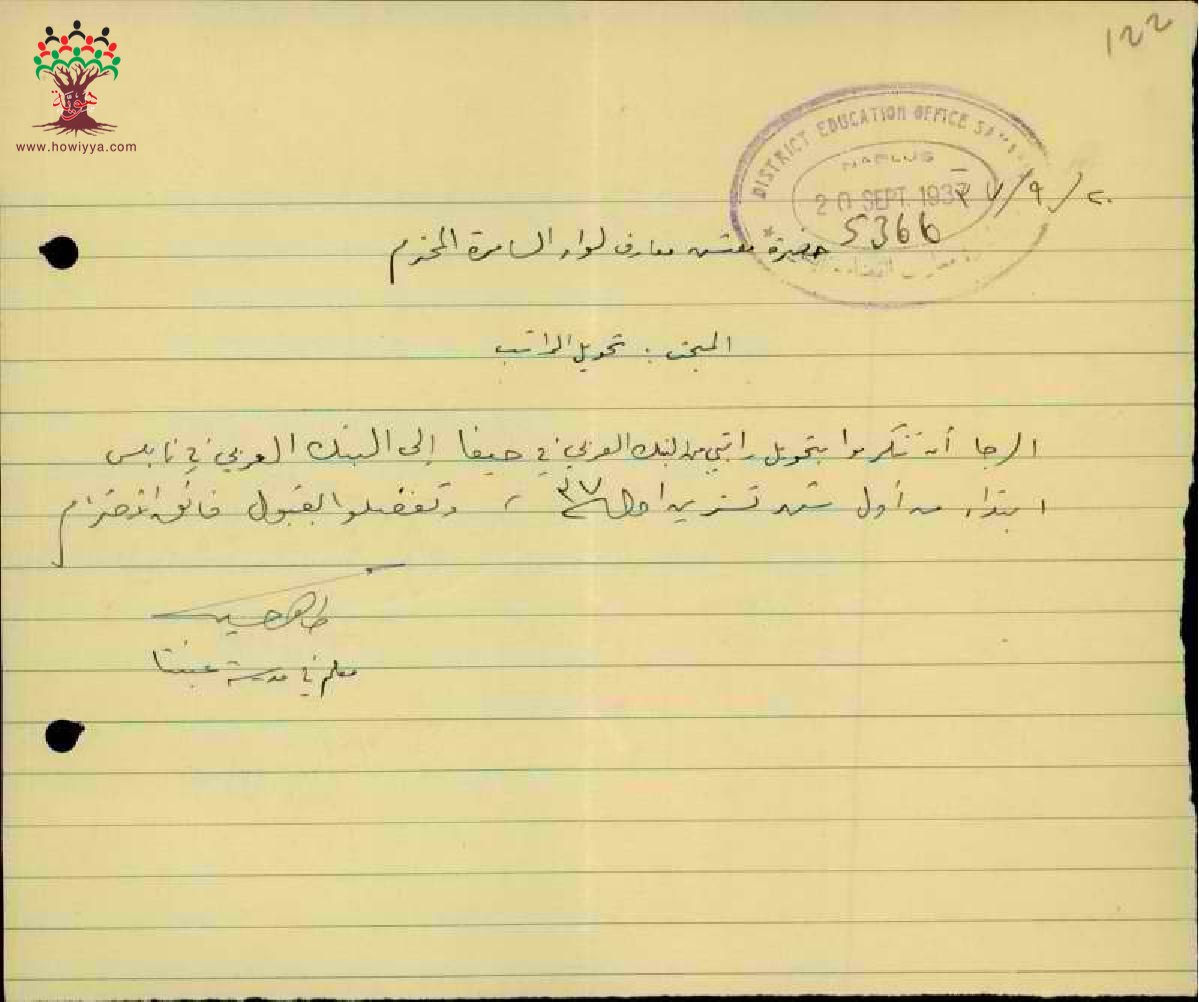 122
هوية
www.howiyya.com
DISTRICT EDUCATION OFFICE
NABLUS
20 SEPT. 1937
5366
٢٠/٩/٣٧
حضرة مفتش معارف لواء السامرة المحترم
المبحث : تحويل الراتب
الرجا أن تتكرموا بتحويل راتبي من البنك العربي في حيفا إلى البنك العربي في نابلس
ابتداء من أول شهر تشرين اول ٣٧ ، وتفضلوا بقبول فائق الاحترام
معلم في مدرسة عنبتا